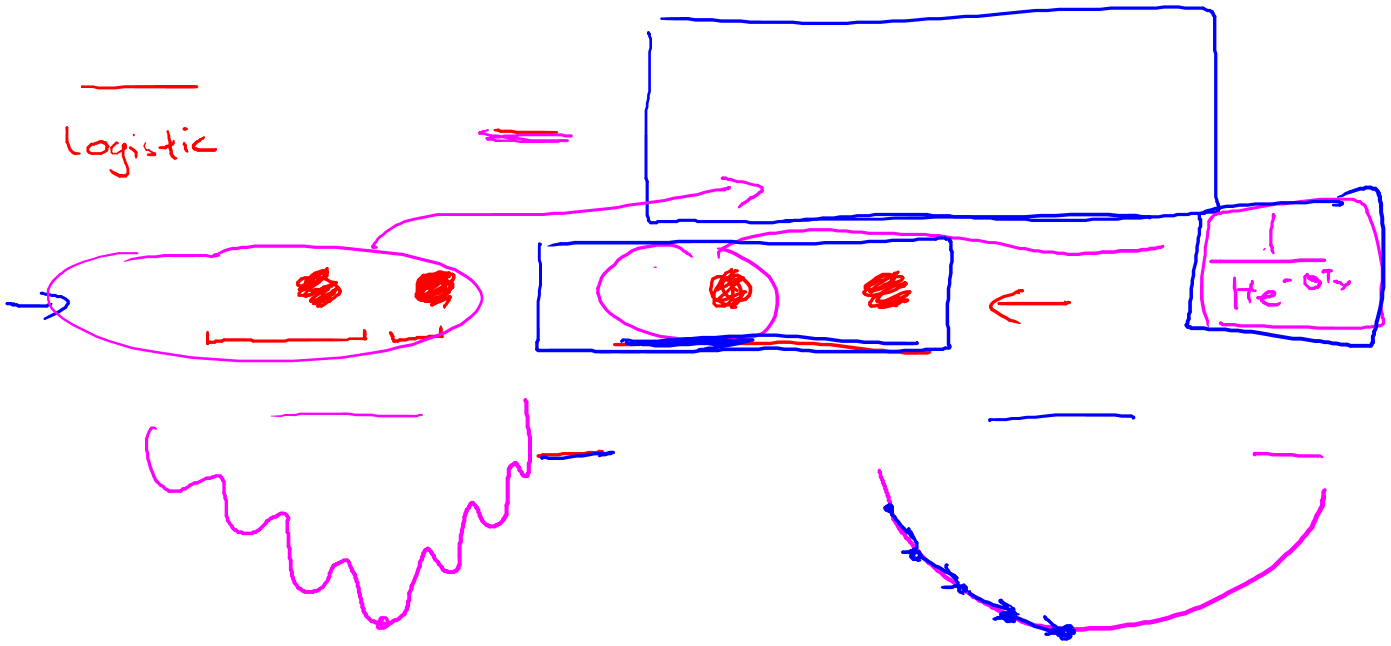 Logistic
1
1+e^{-θᵀx}